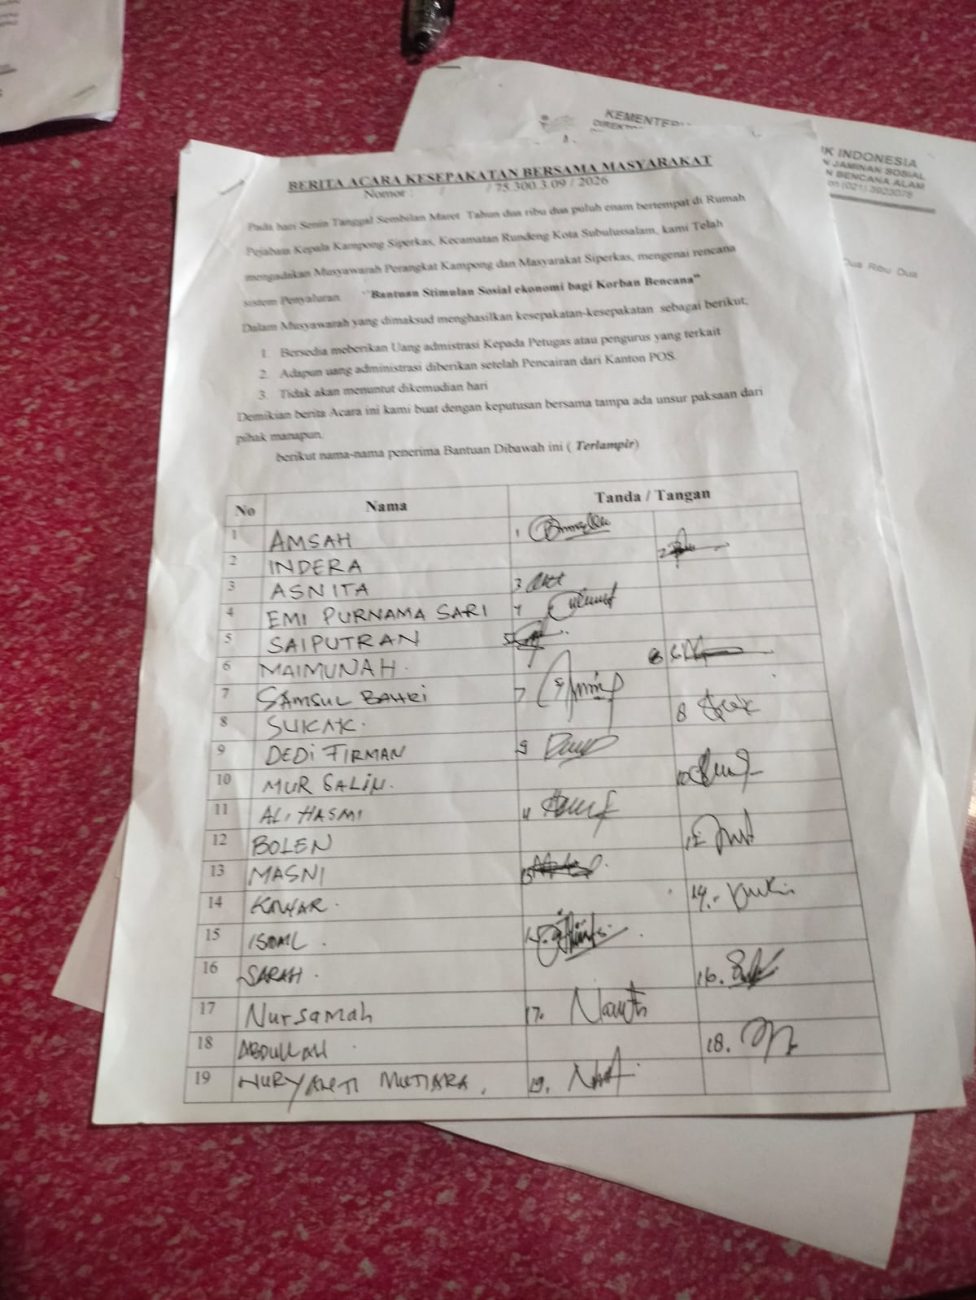 KEMENTERI
DIREKTO
IK INDONESIA
N JAMINAN SOSIAL
N BENCANA ALAM
(021) 3923078
Dua Ribu Dua
BERITA ACARA KESEPAKATAN BERSAMA MASYARAKAT
Nomor : / / 75.300.3.09 / 2026
Pada hari Senin Tanggal Sembilan Maret Tahun dua ribu dua puluh enam bertempat di Rumah
Pejaban Kepala Kampong Siperkas, Kecamatan Rundeng Kota Subulussalam, kami Telah
mengadakan Musyawarah Perangkat Kampong dan Masyarakat Siperkas, mengenai rencana
sistem Penyaluran "Bantuan Stimulan Sosial ekonomi bagi Korban Bencana"
Dalam Musyawarah yang dimaksud menghasilkan kesepakatan-kesepakatan sebagai berikut;
1. Bersedia meberikan Uang admistrasi Kepada Petugas atau pengurus yang terkait
2. Adapun uang administrasi diberikan setelah Pencairan dari Kanton POS.
3. Tidak akan menuntut dikemudian hari
Demikian berita Acara ini kami buat dengan keputusan bersama tampa ada unsur paksaan dari
pihak manapun.
berikut nama-nama penerima Bantuan Dibawah ini ( Terlampir)
No Nama Tanda / Tangan
1 AMSAH 1
2 INDERA 2
3 ASNITA 3
4 EMI PURNAMA SARI 4
5 SAIPUTRAN 5
6 MAIMUNAH. 6
7 SAMSUL BAHRI 7
8 SUKAK. 8
9 DEDI FIRMAN 9
10 MUR SALIN. 10
11 ALI HASMI 11
12 BOLEN 12
13 MASNI 13
14 KAWAR. 14.
15 ISMAIL. 15.
16 SARAH. 16.
17 Nursamah 17.
18 ABDULLAH 18.
19 NURYANTI MUTIARA. 19.